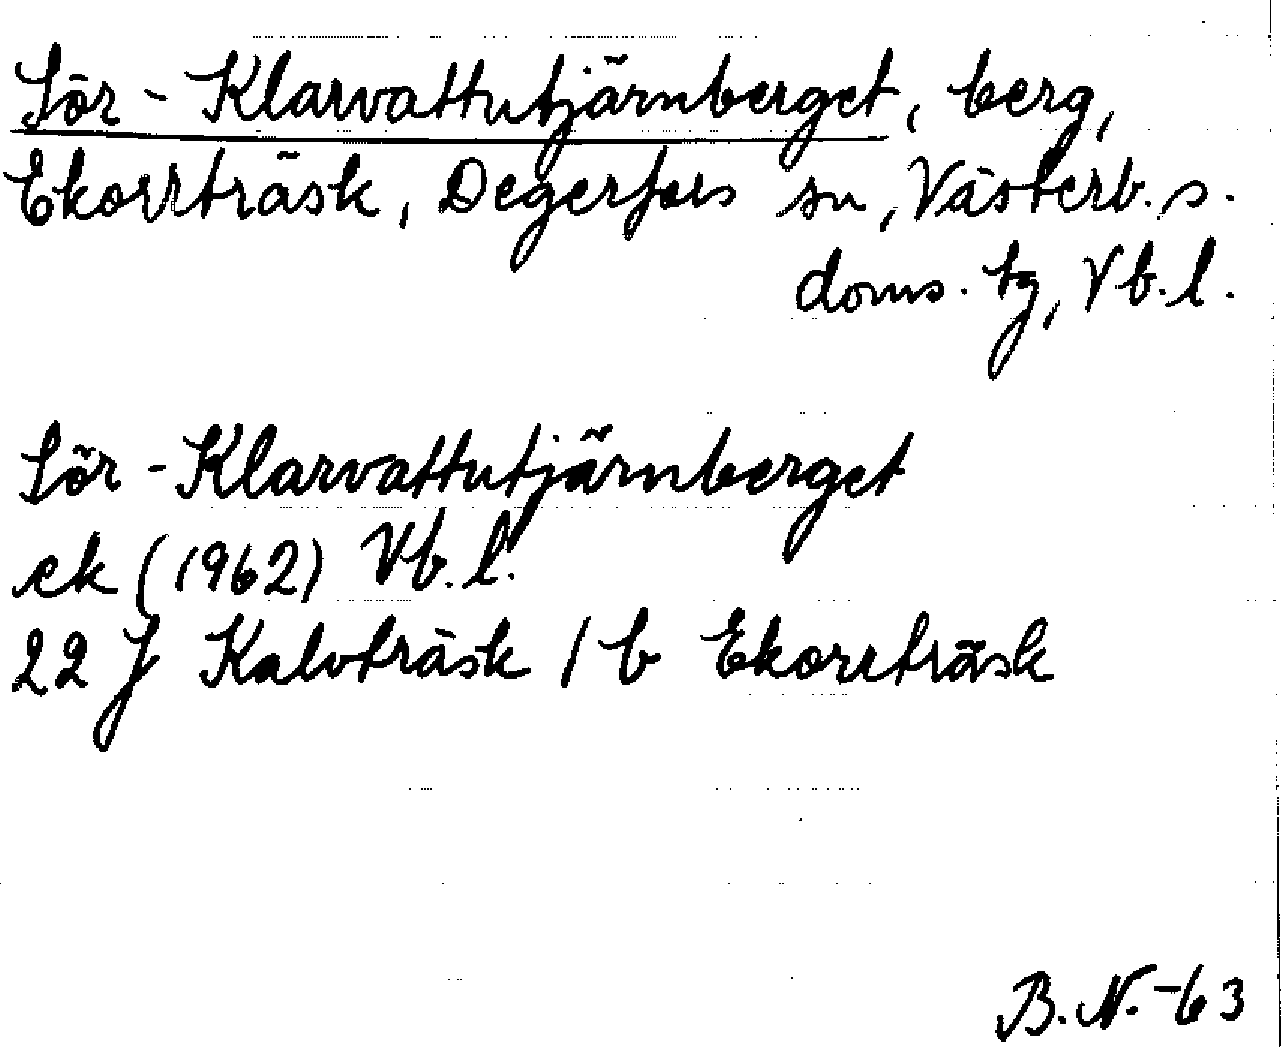 Sör-Klarvattutjärnberget, berg,
Ekorrträsk, Degerfors sn, Västerb. s.
doms. tg, Vb. l.
Sör-Klarvattutjärnberget
ek (1962) Vb. l.
22 J Kalvträsk 1 b Ekorrträsk
B. N. -63